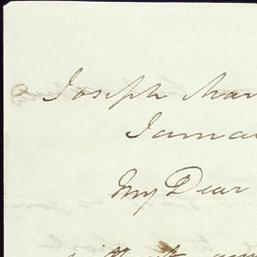 Joseph Mar
Jamai
My Dear